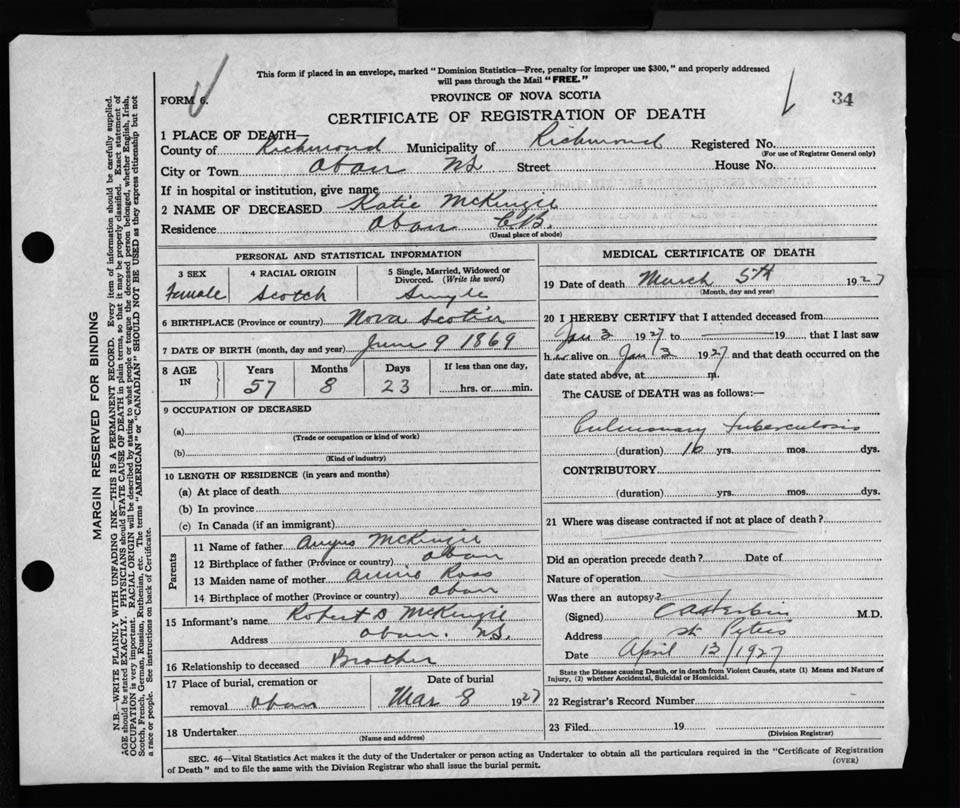 This form if placed in an envelope, marked "Dominion Statistics—Free, penalty for improper use $300," and properly addressed
will pass through the Mail "FREE."
FORM 6.
PROVINCE OF NOVA SCOTIA
34
CERTIFICATE OF REGISTRATION OF DEATH
1 PLACE OF DEATH—
County of Richmond Municipality of Richmond Registered No.
(For use of Registrar General only)
City or Town Oban NS Street House No.
If in hospital or institution, give name
2 NAME OF DECEASED Katie McKenzie
Residence Oban C.B.
(Usual place of abode)
PERSONAL AND STATISTICAL INFORMATION
3 SEX 4 RACIAL ORIGIN 5 Single, Married, Widowed or Divorced. (Write the word)
Female Scotch Single
6 BIRTHPLACE (Province or country) Nova Scotia
7 DATE OF BIRTH (month, day and year) June 9 1869
8 AGE IN Years Months Days If less than one day,
57 8 23 hrs. or min.
9 OCCUPATION OF DECEASED
(a)
(Trade or occupation or kind of work)
(b)
(Kind of industry)
10 LENGTH OF RESIDENCE (in years and months)
(a) At place of death
(b) In province
(c) In Canada (if an immigrant)
Parents
11 Name of father Angus McKenzie
12 Birthplace of father (Province or country) Oban
13 Maiden name of mother Annie Ross
14 Birthplace of mother (Province or country) Oban
15 Informant's name Robert D McKenzie
Address Oban. N.S.
16 Relationship to deceased Brother
17 Place of burial, cremation or Date of burial
removal Oban Mar 8 1927
18 Undertaker
(Name and address)
MEDICAL CERTIFICATE OF DEATH
19 Date of death March 5th 1927
(Month, day and year)
20 I HEREBY CERTIFY that I attended deceased from
Jan 3 1927 to 19 that I last saw
her alive on Jan 3 1927 and that death occurred on the
date stated above, at m.
The CAUSE of DEATH was as follows:—
Pulmonary tuberculosis
(duration) yrs. mos. dys.
CONTRIBUTORY
(duration) yrs. mos. dys.
21 Where was disease contracted if not at place of death?
Did an operation precede death? Date of
Nature of operation
Was there an autopsy?
(Signed) M.D.
Address St Peters
Date April 13/1927
State the Disease causing Death, or in death from Violent Causes, state (1) Means and Nature of
Injury, (2) whether Accidental, Suicidal or Homicidal.
22 Registrar's Record Number
23 Filed 19
(Division Registrar)
SEC. 46—Vital Statistics Act makes it the duty of the Undertaker or person acting as Undertaker to obtain all the particulars required in the "Certificate of Registration
of Death" and to file the same with the Division Registrar who shall issue the burial permit.
(OVER)
MARGIN RESERVED FOR BINDING
N.B.—WRITE PLAINLY WITH UNFADING INK—THIS IS A PERMANENT RECORD. Every item of information should be carefully supplied.
AGE should be stated EXACTLY. PHYSICIANS should STATE CAUSE OF DEATH in plain terms, so that it may be properly classified. Exact statement of
OCCUPATION is very important. RACIAL ORIGIN will be described by stating to what people or tongue the deceased person belonged, whether English, Irish,
Scotch, French, German, Russian, Ruthenian, etc. The terms "AMERICAN" or "CANADIAN" SHOULD NOT BE USED as they express citizenship but not
a race or people. See instructions on back of Certificate.